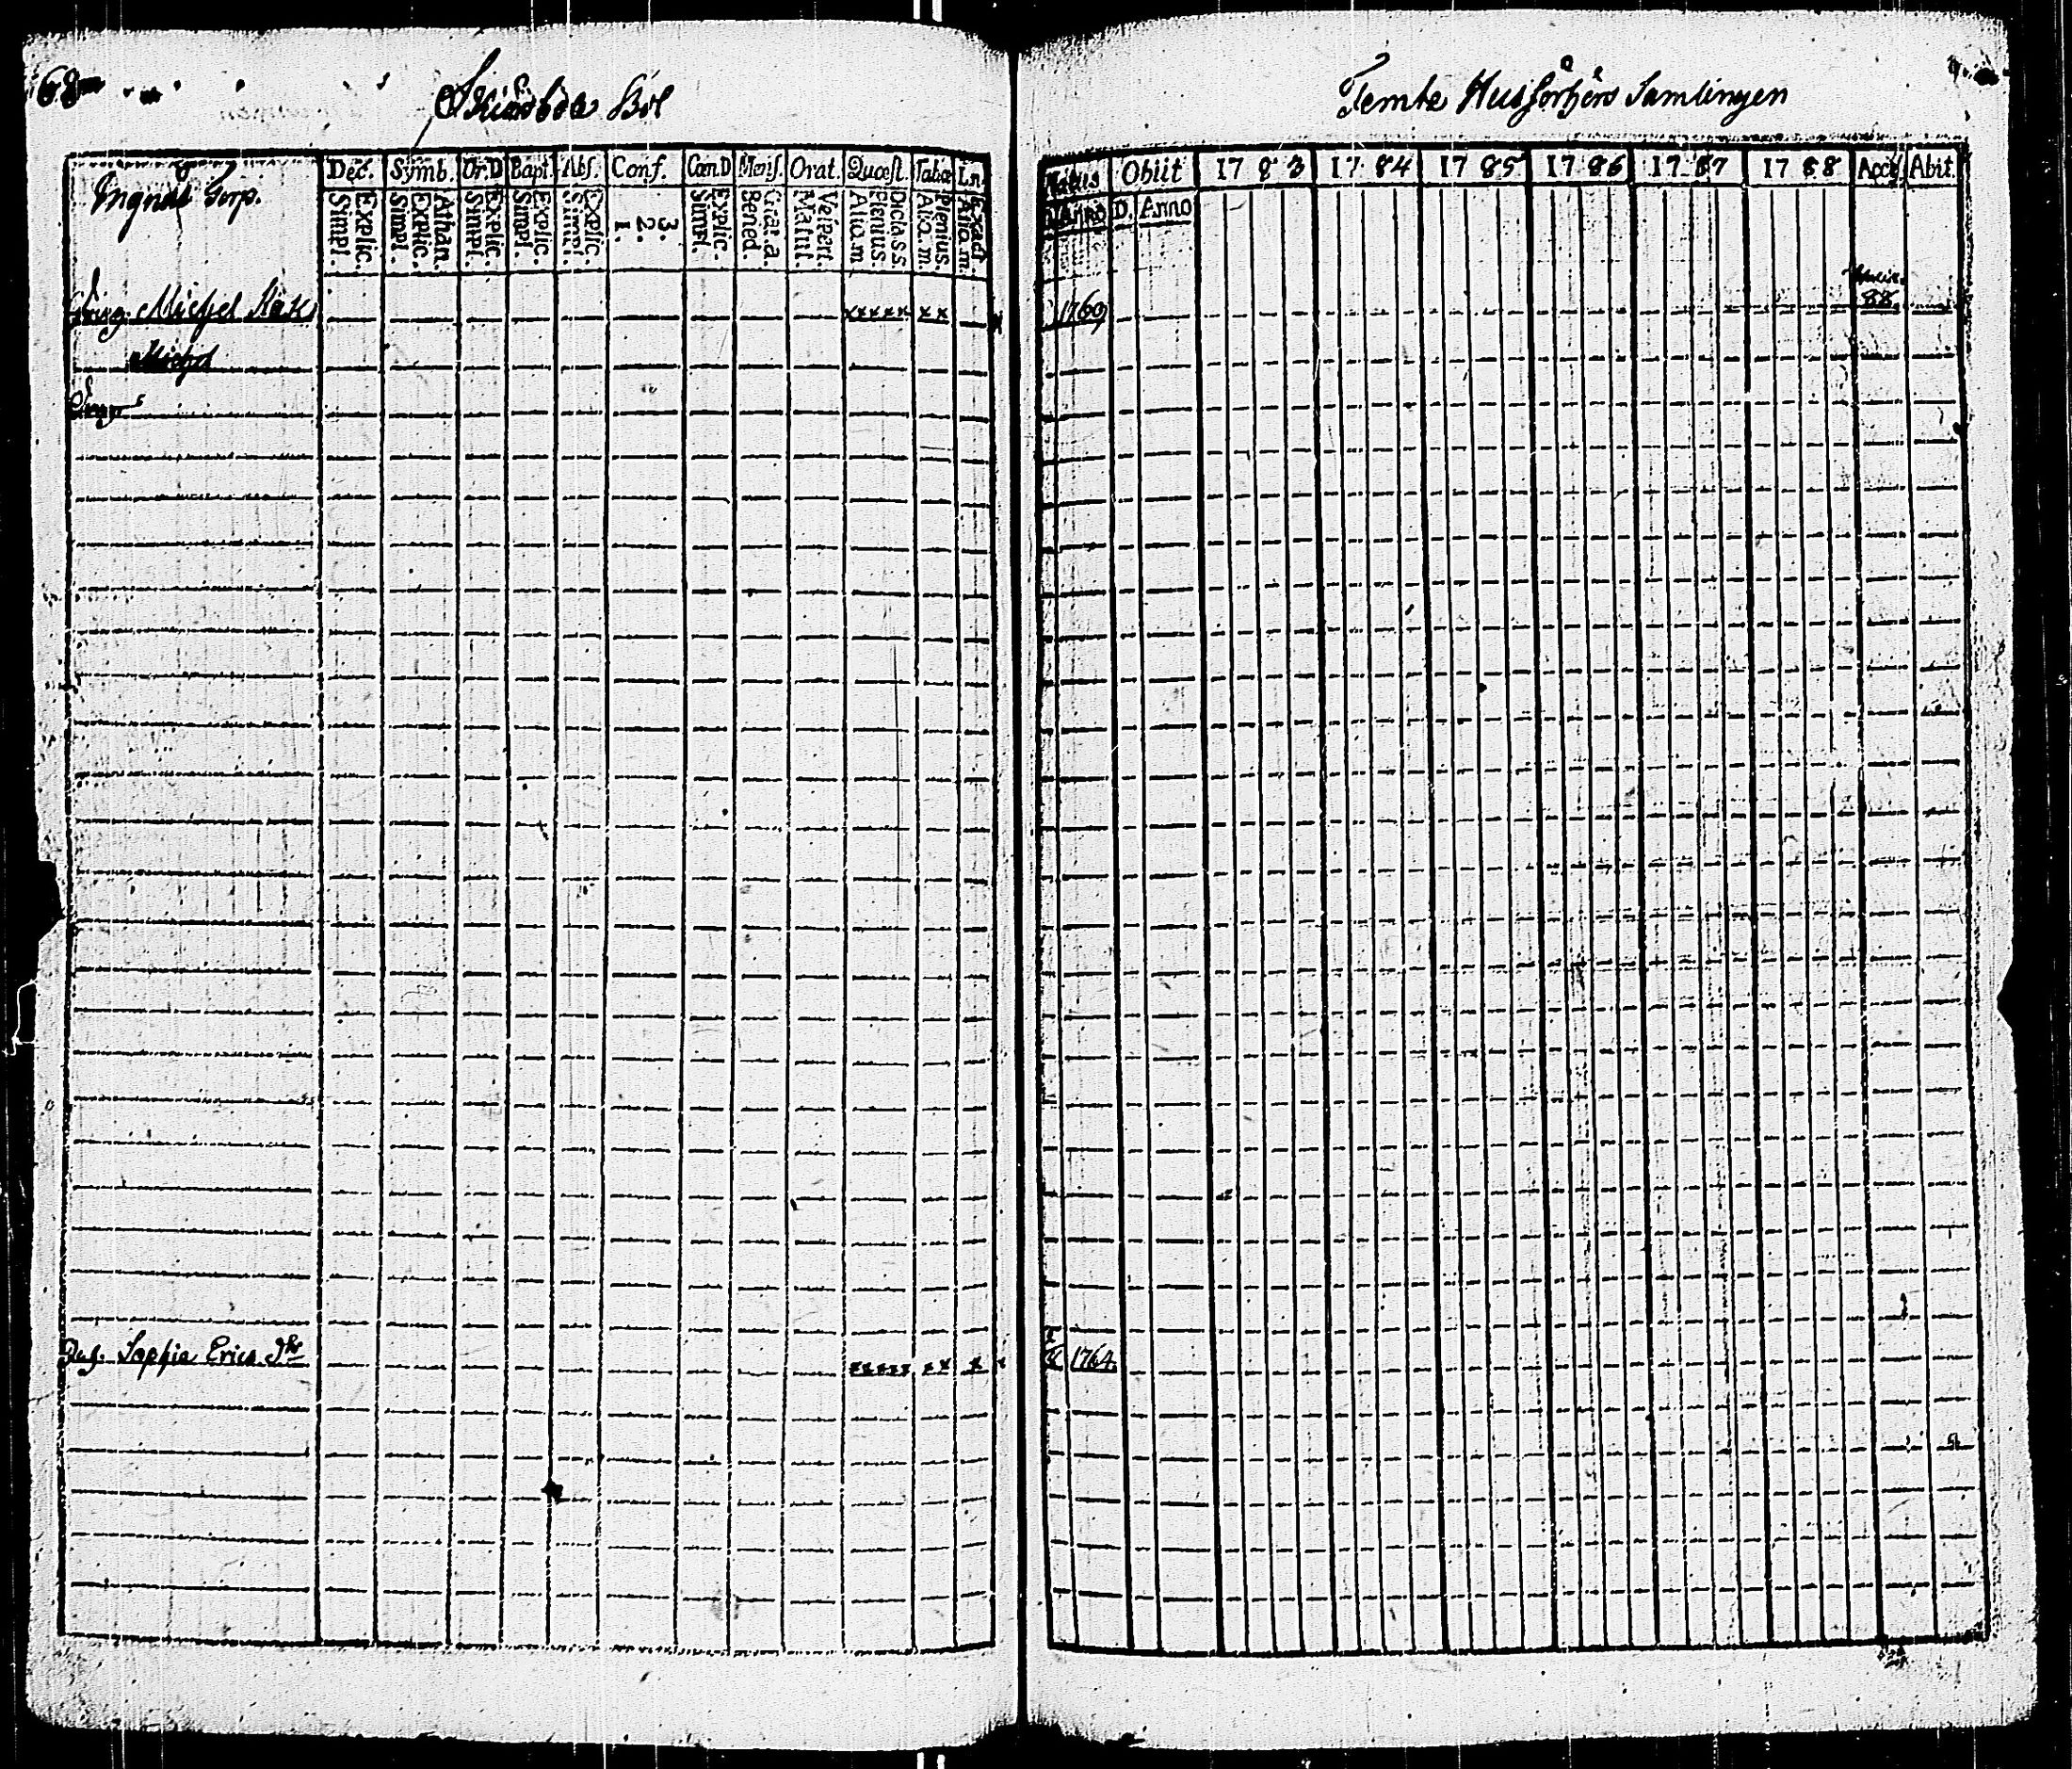 68
Skinsböle Böl
Femte Husförhörs Samlingen
Ingnäs Torp.
Dec. Symb. Or.D Bapt. Abs. Conf. Cœn.D Mens. Orat. Quæst. Tabæ Ln.
Explic. Simpl. Athan. Explic. Simpl. Explic. Simpl. Explic. Simpl. Explic. Simpl. 3. 2. 1. Explic. Simpl. Grat.a. Bened. Vespert. Matut. Dicta s.s. Plenius. Alio.m Plenius. Alio.m. Exact. Alio.m.
Natus Obiit 17 83 17 84 17 85 17 86 17 87 17 88 Acce Abit
Anno D. Anno
Michel xxxxx xx 1769 88.
Michel
Sophia Erics dtr xxxxx xx x 1764.